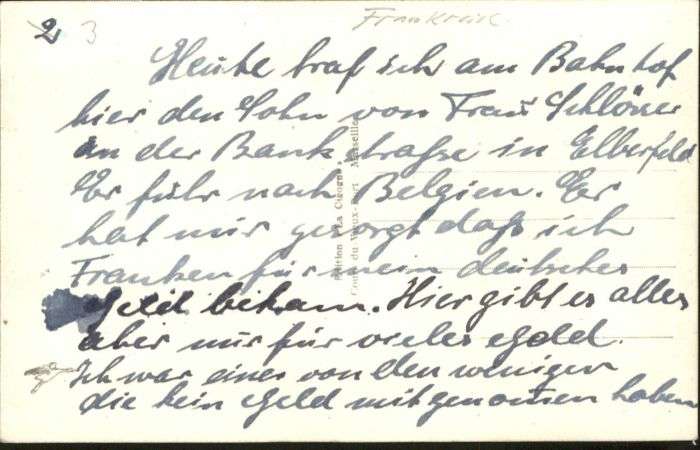 2 3
Frankreich.
Heute traf ich am Bahnhof
hier den Sohn von Frau Schlösser
in der Bankstraße in Elberfeld
Er fuhr nach Belgien. Er
hat mir gesorgt daß ich
Franken für mein deutsches
Geld bekam. Hier gibt es alles
aber nur für vieles Geld.
Ich war einer von den wenigen
die kein Geld mitgenommen haben
Edition "La Cigogne"
Cours du Vieux-Port Marseille